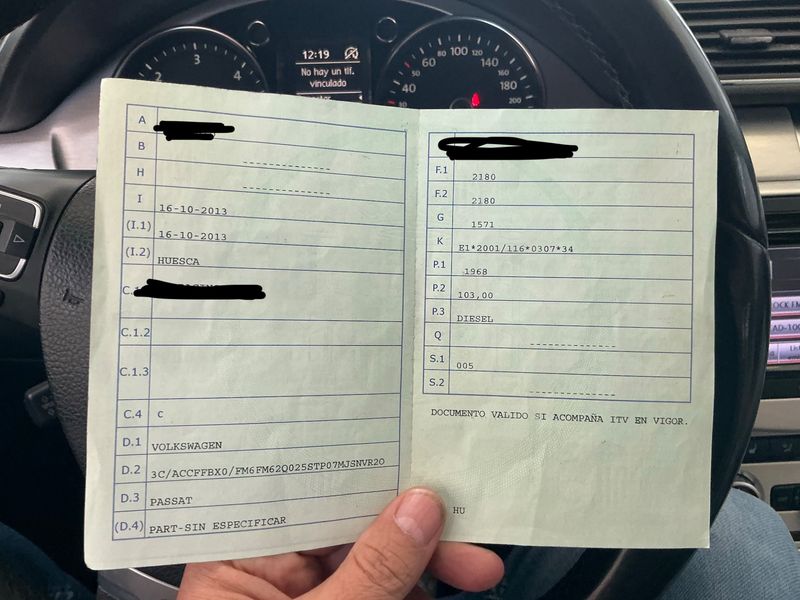 2
3
4
12:19
No hay un tlf.
vinculado
40
60
80
100
120
140
160
180
200
A
B
H
I 16-10-2013
(I.1) 16-10-2013
(I.2) HUESCA
C.1.2
C.1.3
C.4 c
D.1 VOLKSWAGEN
D.2 3C/ACCFFBX0/FM6FM62Q025STP07MJSNVR2O
D.3 PASSAT
(D.4) PART-SIN ESPECIFICAR
F.1 2180
F.2 2180
G 1571
K E1*2001/116*0307*34
P.1 1968
P.2 103,00
P.3 DIESEL
Q
S.1 005
S.2
DOCUMENTO VALIDO SI ACOMPAÑA ITV EN VIGOR.
HU